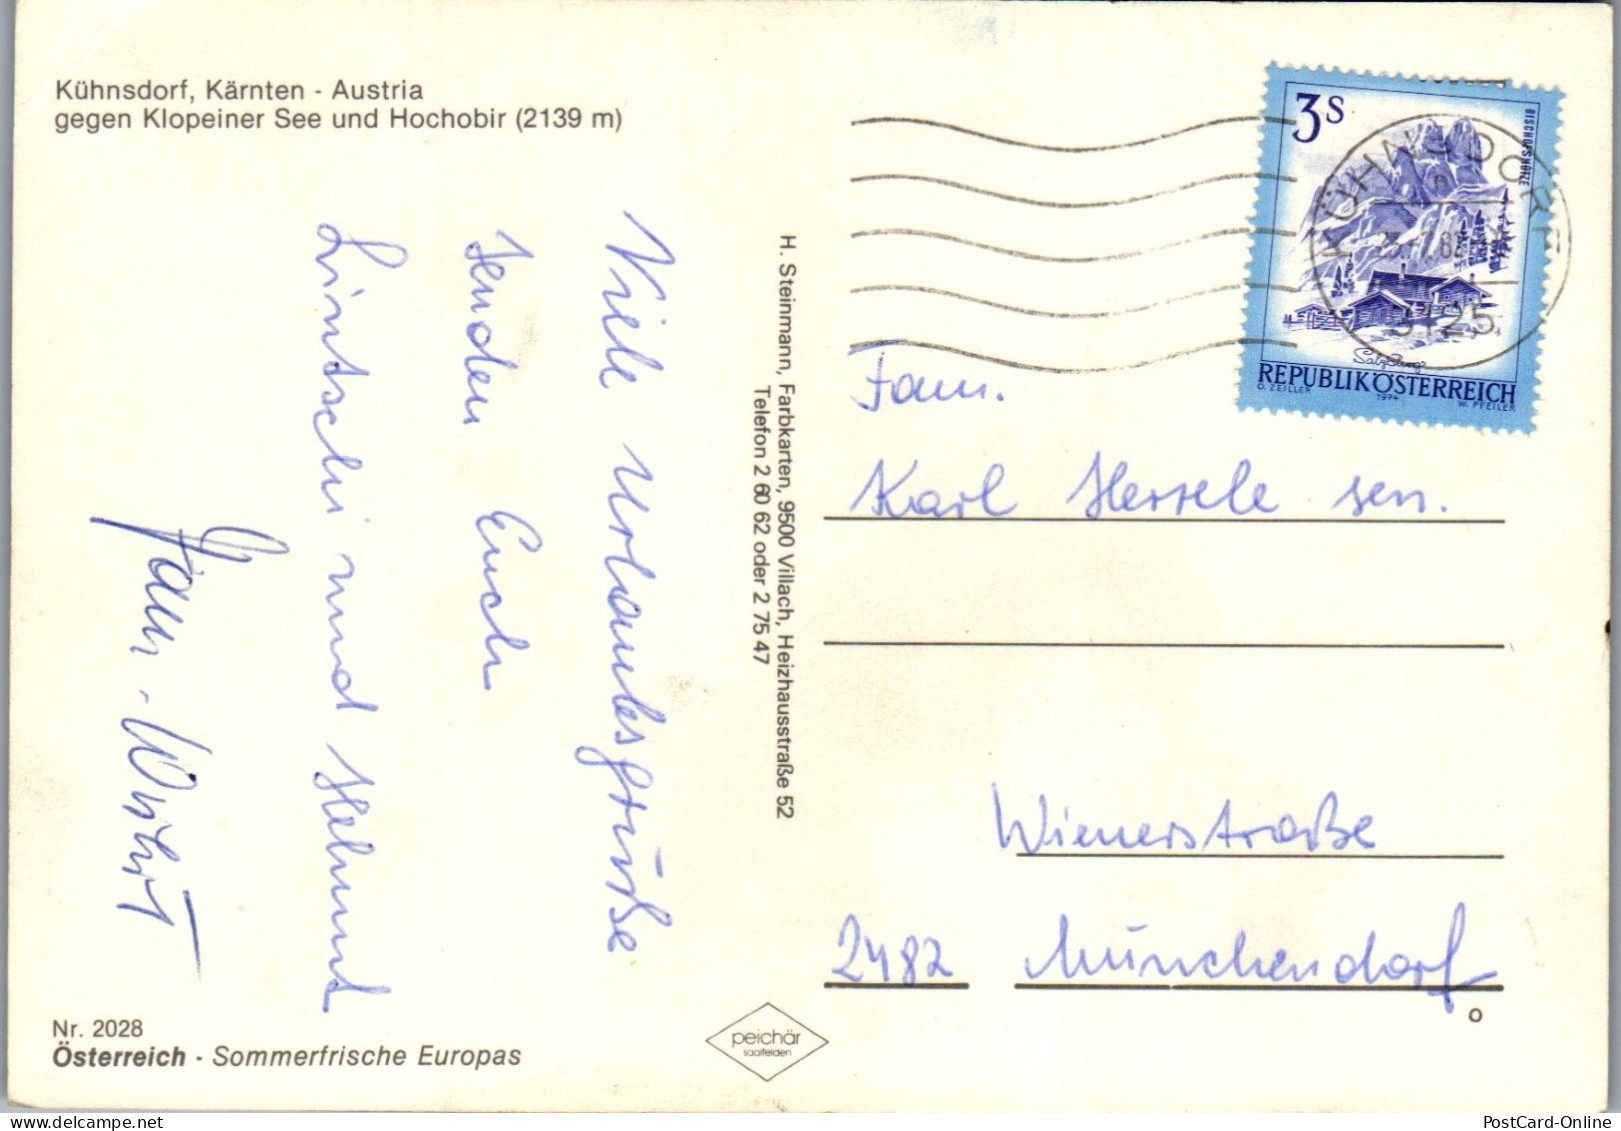 Kühnsdorf, Kärnten - Austria
gegen Klopeiner See und Hochobir (2139 m)
Viele Urlaubsgrüße
senden Euch
und Helmut
Nr. 2028
Österreich - Sommerfrische Europas
H. Steinmann, Farbkarten, 9500 Villach, Heizhausstraße 52
Telefon 2 60 62 oder 2 75 47
peichär
saalfelden
3 S
BISCHOFSMÜTZE
Salzburg
REPUBLIK ÖSTERREICH
O. ZEILLER 1974 W. PFEILER
KÜHNSDORF
9125
Fam.
Karl sen.
Wienerstraße
2482 Münchendorf
PostCard-Online